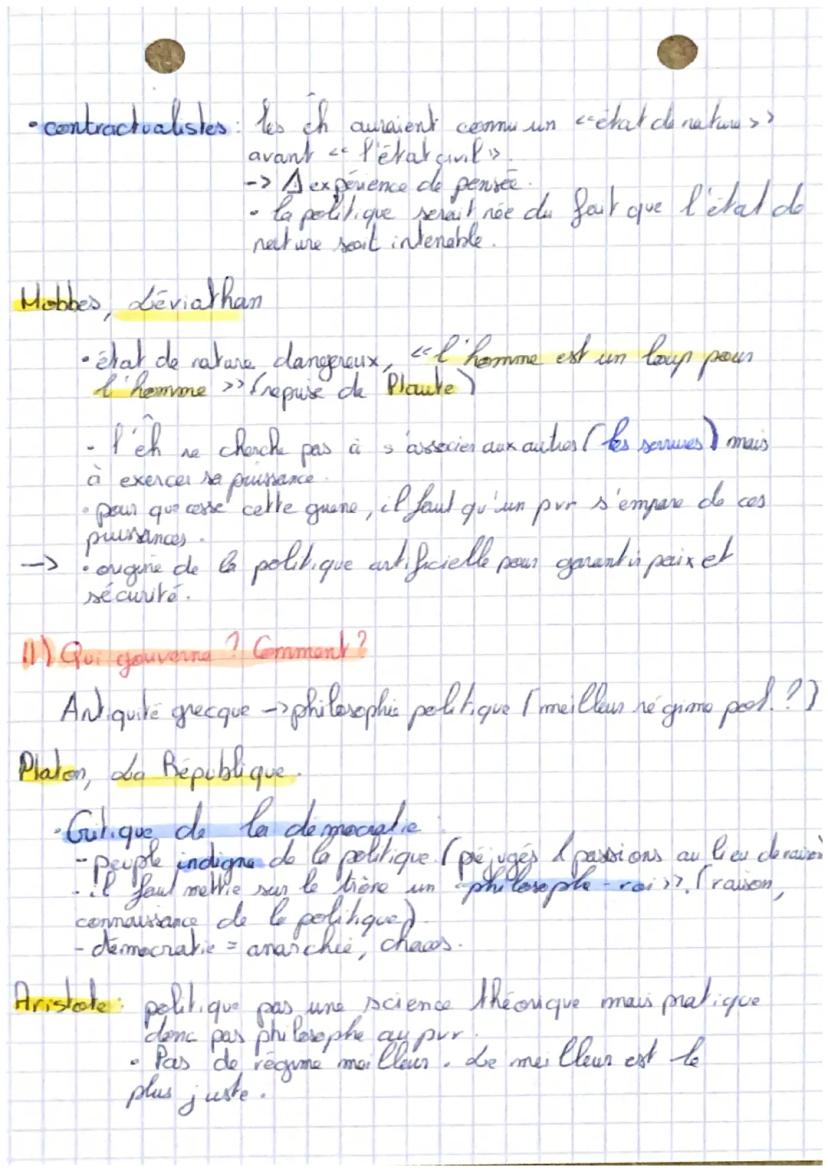 • contractualistes : les êh auraient connu un «état de nature»
avant «l'état civil».
-> ⚠ expérience de pensée.
• la politique serait née du fait que l'état de
nature soit intenable.
Hobbes, Léviathan
• état de nature dangereux, «l'homme est un loup pour
l'homme» (reprise de Plaute)
- l'êh ne cherche pas à s'associer aux autres (les serrures) mais
à exercer sa puissance.
• pour que cesse cette guerre, il faut qu'un pvr s'empare de ces
puissances.
-> • origine de la politique artificielle pour garantir paix et
sécurité.
II) Qui gouverne ? Comment ?
Antiquité grecque -> philosophie politique (meilleur régime pol. ?)
Platon, La République.
• Critique de la démocratie :
- peuple indigne de la politique (préjugés & passions au lieu de raison
- il faut mettre sur le trône un «philosophe-roi». (raison,
connaissance de la politique)
- démocratie = anarchie, chaos.
Aristote : politique pas une science théorique mais pratique
donc pas philosophe au pvr.
• Pas de régime meilleur. Le meilleur est le
plus juste.